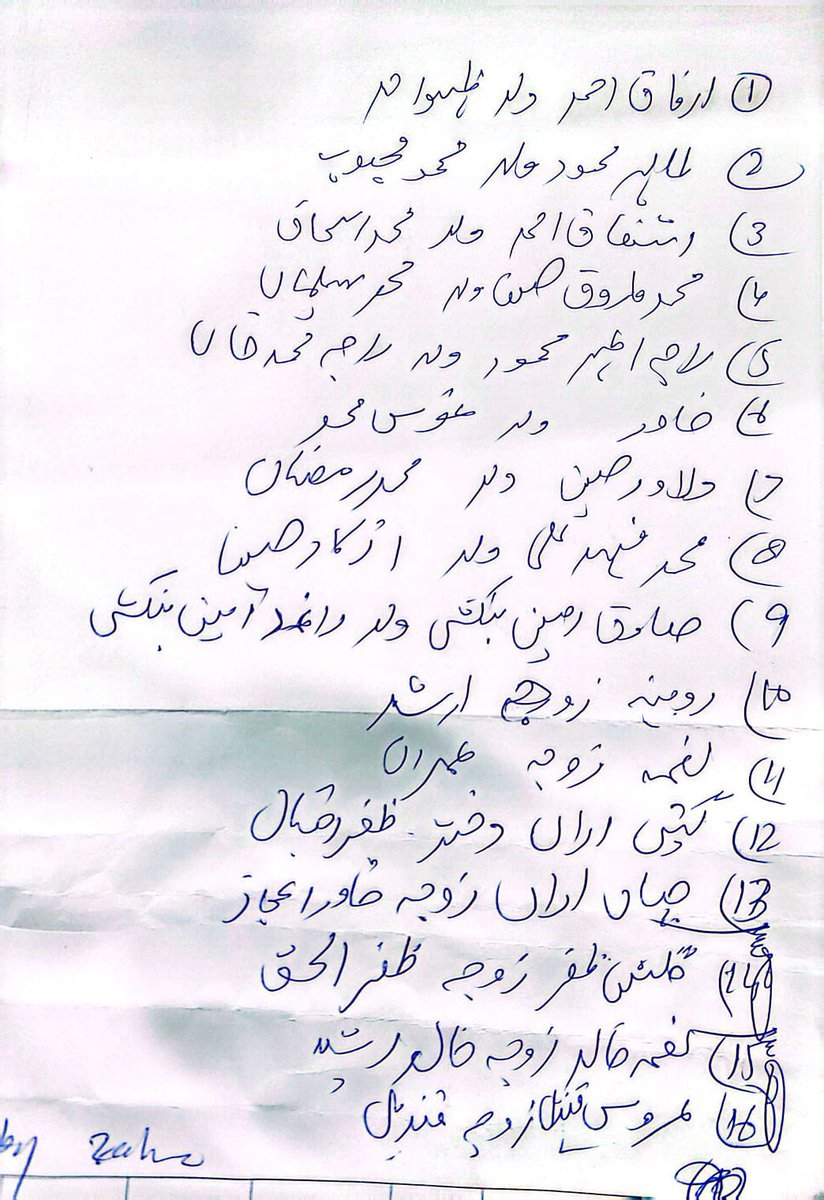 ① ارفاق احمد ولد ظہور احمد
2) طاہر محمود ولد محمد محبوب
3) اشتفاق احمد ولد محمد اسحاق
4) محمد فاروق حسین ولد محمد سلیمان
5) راجہ اظہر محمود ولد راجہ محمد خان
6) خاور ولد غوث محمد
7) دلاور حسین ولد محمد رمضان
8) محمد فہد علی ولد حسین
9) صادق امین بنگش ولد آمین بنگش
10) روبینہ زوجہ ارشد
11) نغمہ زوجہ عمران
12) اراں دختر ظفر اقبال
13) اراں زوجہ خاور اعجاز
14) گلشن ظفر زوجہ ظفر الحق
15) نغمہ خالد زوجہ خالد رشید
16) عروس زوجہ قندیل
by